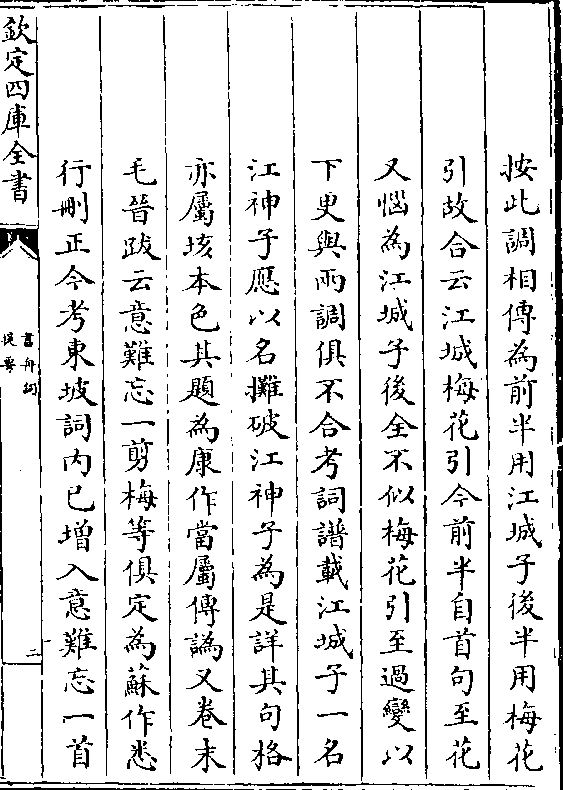 按此調相傳為前半用江城子後半用梅花
引故合云江城梅花引今前半自首句至花
又惱為江城子後全不似梅花引至過變以
下更與兩調俱不合考詞譜載江城子一名
江神子應以名攤破江神子為是詳其句格
亦屬垓本色其題為康作當屬傳譌又卷末
毛晉跋云意難忘一剪梅等俱定為蘇作悉
行刪正今考東坡詞內已增入意難忘一首
欽定四庫全書
書舟詞
提要
二